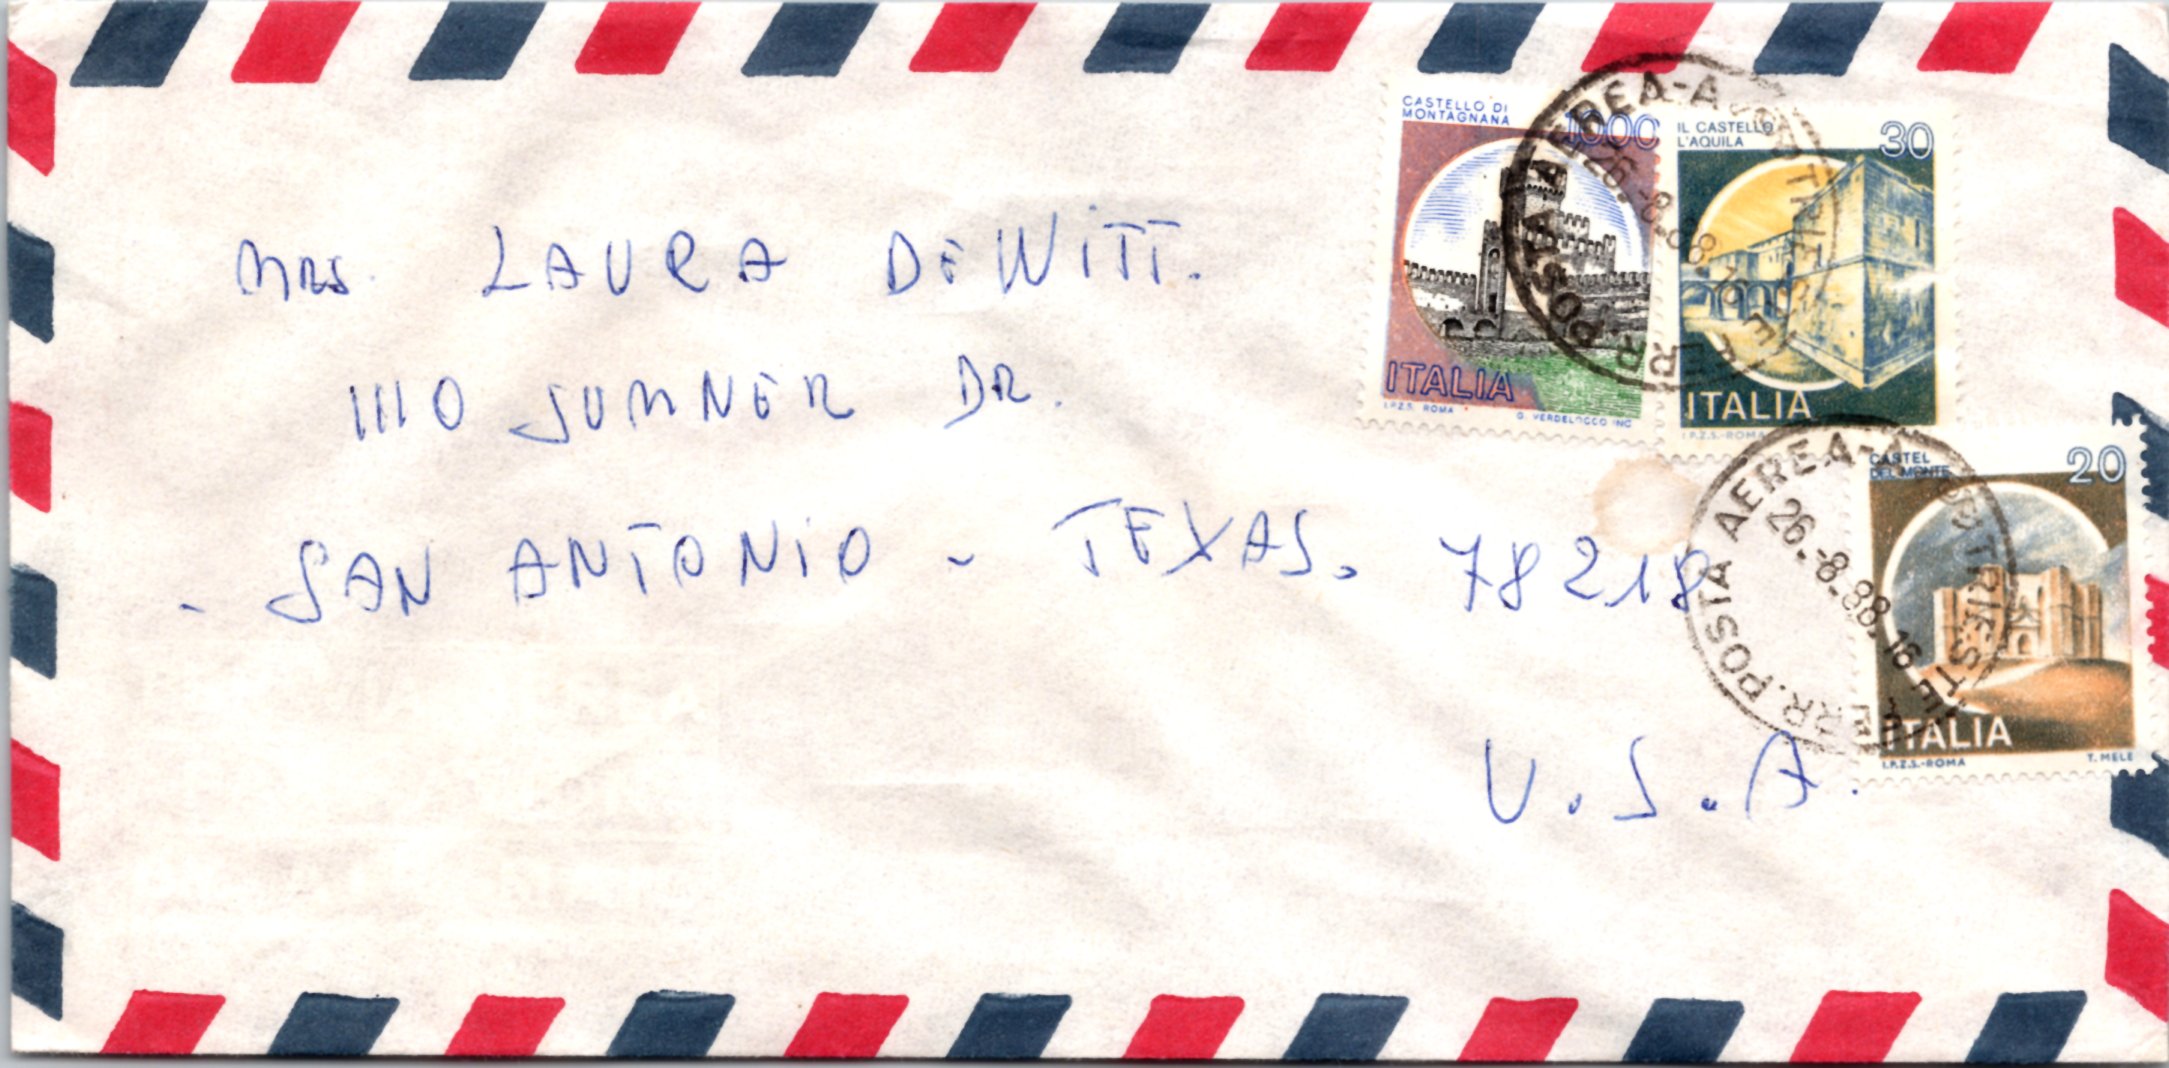 CASTELLO DI
MONTAGNANA
1000
IL CASTELLO
L'AQUILA
30
ITALIA
I.P.Z.S. ROMA
G. VERDELOCCO INC
ITALIA
I.P.Z.S.-ROMA
POSTA AEREA-A
26.-8.88.16
TRIESTE
FERR.
MRS. LAURA DEWITT.
1110 SUMNER DR.
- SAN ANTONIO - TEXAS. 78218
U.S.A.
CASTEL
DEL MONTE
20
ITALIA
I.P.Z.S.-ROMA
T. MELE
POSTA AEREA-A
26.-8.88.16
TRIESTE
FERR.